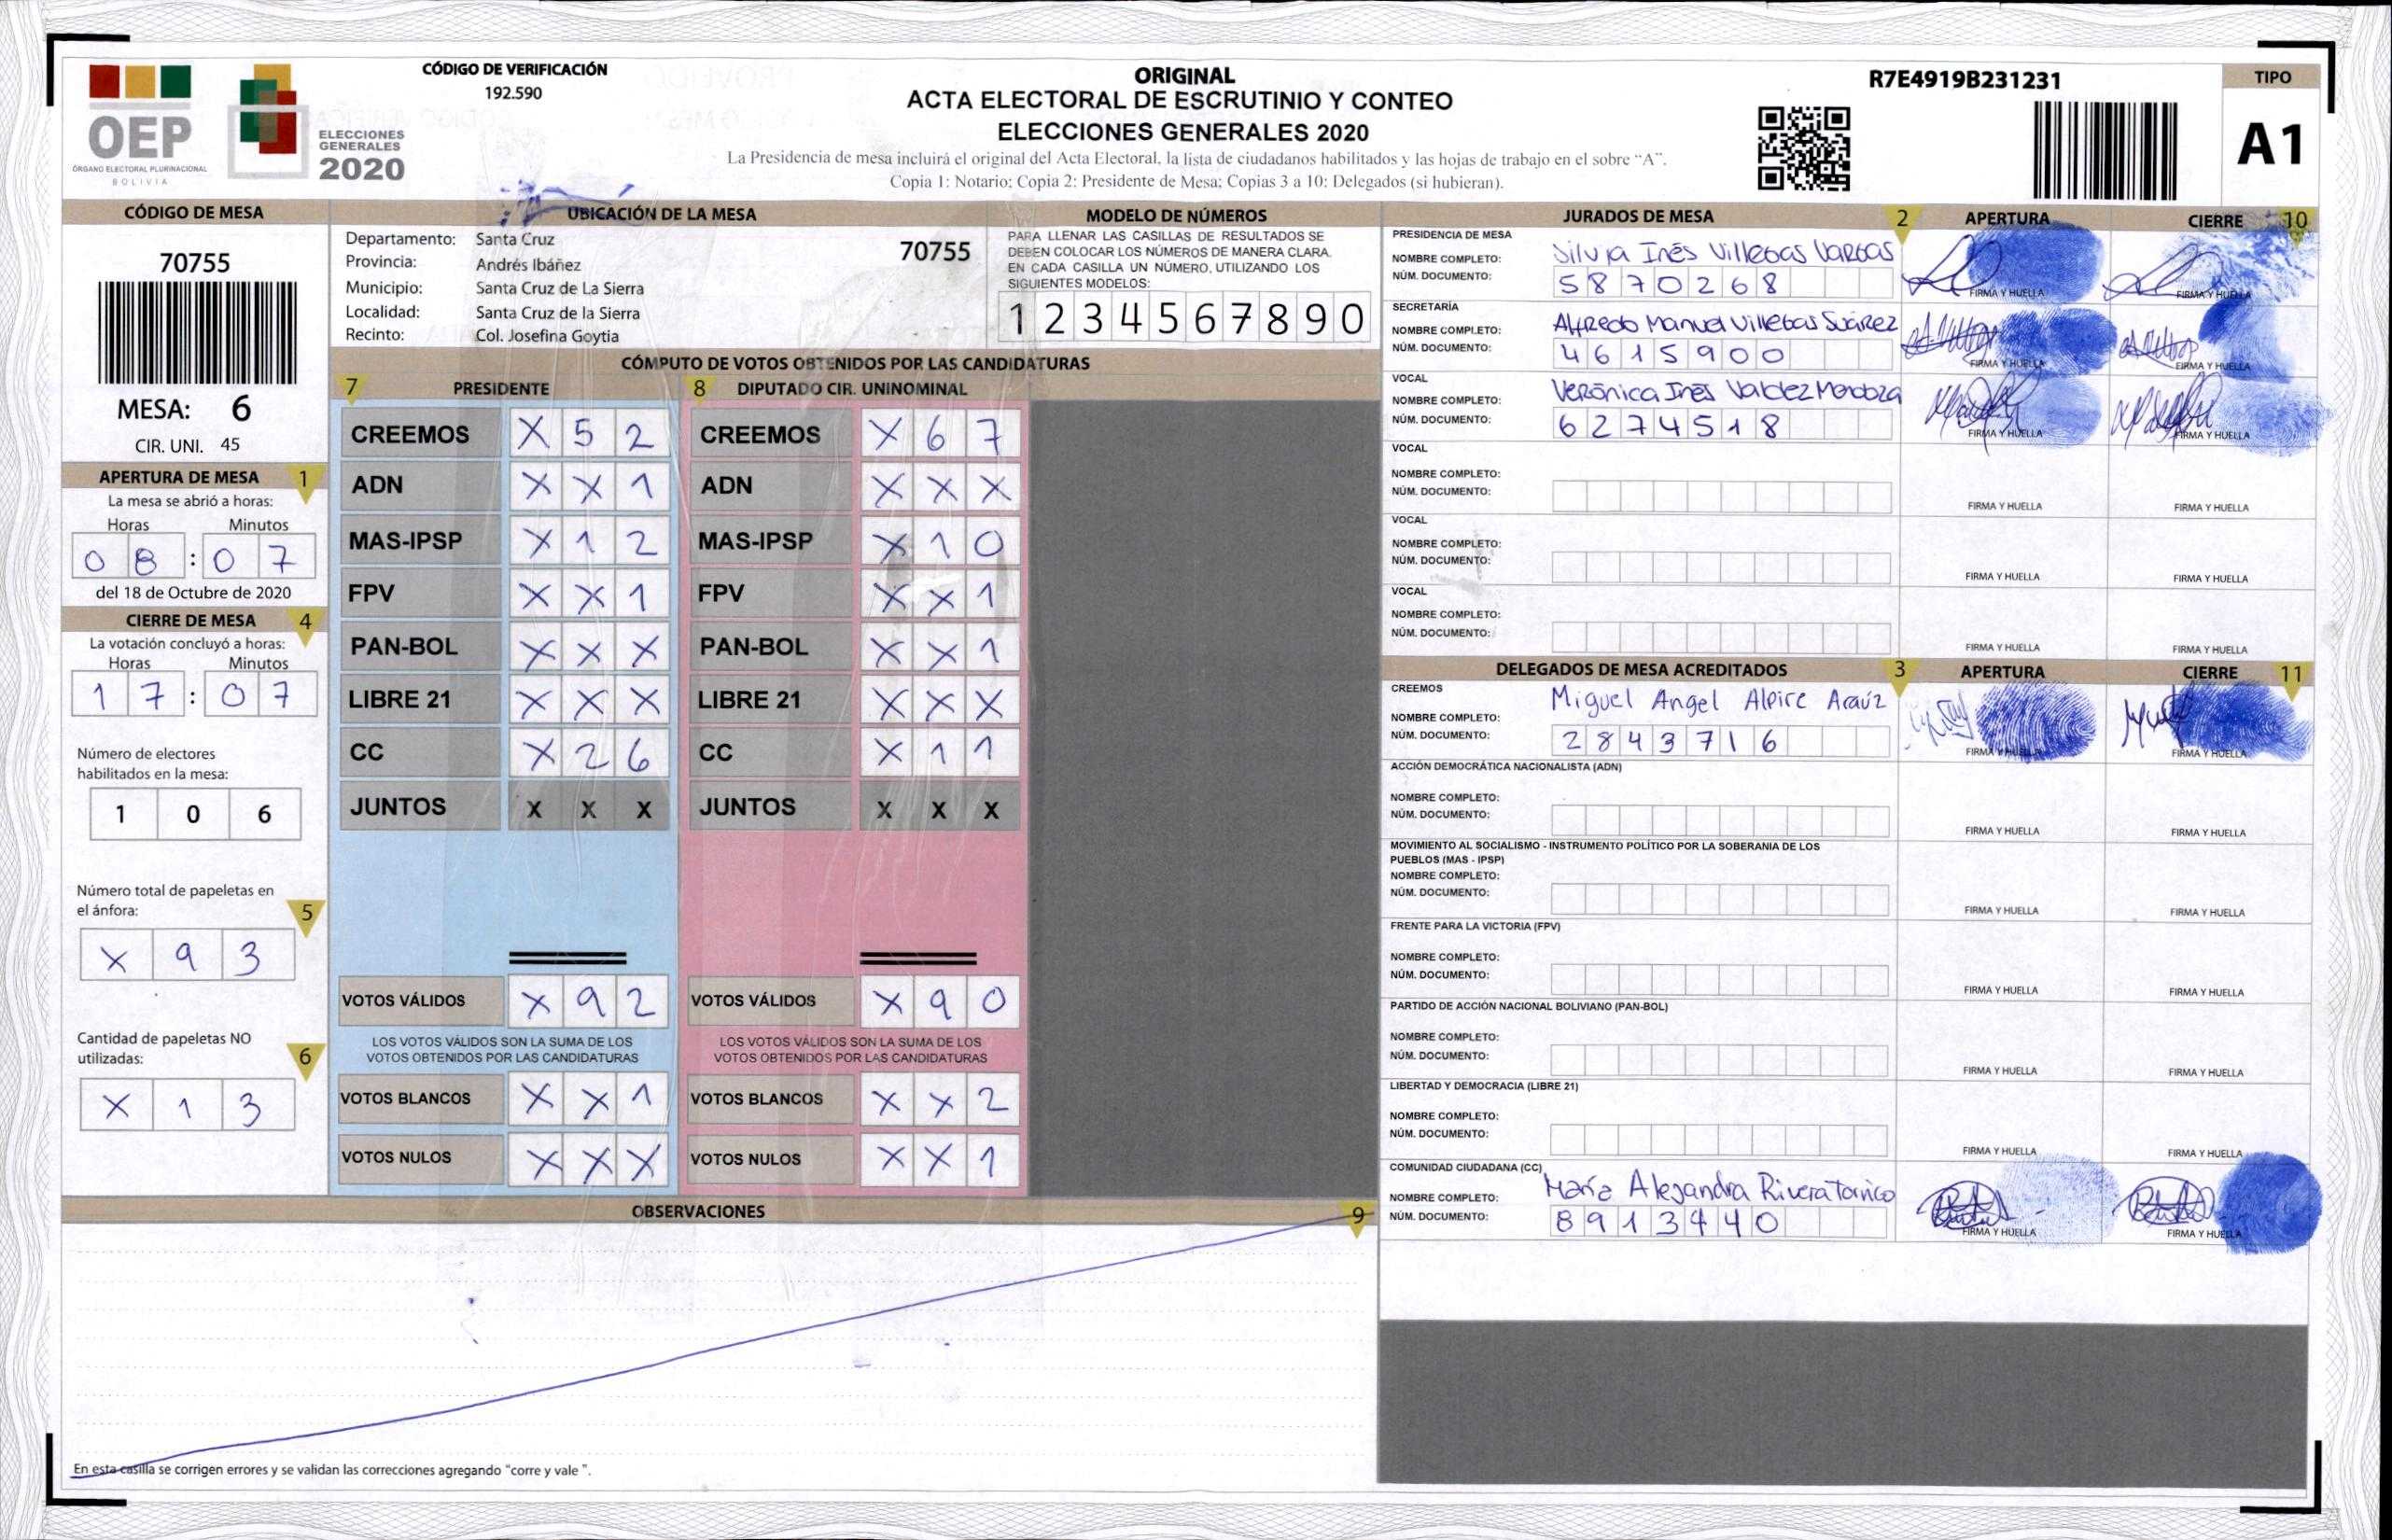 OEP
ÓRGANO ELECTORAL PLURINACIONAL
BOLIVIA
ELECCIONES
GENERALES
2020
CÓDIGO DE VERIFICACIÓN
192.590
ORIGINAL
ACTA ELECTORAL DE ESCRUTINIO Y CONTEO
ELECCIONES GENERALES 2020
La Presidencia de mesa incluirá el original del Acta Electoral, la lista de ciudadanos habilitados y las hojas de trabajo en el sobre "A".
Copia 1: Notario; Copia 2: Presidente de Mesa; Copias 3 a 10: Delegados (si hubieran).
R7E4919B231231
TIPO
A1
CÓDIGO DE MESA
70755
MESA: 6
CIR. UNI. 45
APERTURA DE MESA 1
La mesa se abrió a horas:
Horas Minutos
0 8 : 0 7
del 18 de Octubre de 2020
CIERRE DE MESA 4
La votación concluyó a horas:
Horas Minutos
1 7 : 0 7
Número de electores
habilitados en la mesa:
1 0 6
Número total de papeletas en
el ánfora: 5
X 9 3
Cantidad de papeletas NO
utilizadas: 6
X 1 3
UBICACIÓN DE LA MESA
Departamento: Santa Cruz 70755
Provincia: Andrés Ibáñez
Municipio: Santa Cruz de La Sierra
Localidad: Santa Cruz de la Sierra
Recinto: Col. Josefina Goytia
MODELO DE NÚMEROS
PARA LLENAR LAS CASILLAS DE RESULTADOS SE
DEBEN COLOCAR LOS NÚMEROS DE MANERA CLARA.
EN CADA CASILLA UN NÚMERO, UTILIZANDO LOS
SIGUIENTES MODELOS:
1 2 3 4 5 6 7 8 9 0
CÓMPUTO DE VOTOS OBTENIDOS POR LAS CANDIDATURAS
7 PRESIDENTE 8 DIPUTADO CIR. UNINOMINAL
CREEMOS X 5 2 CREEMOS X 6 7
ADN X X 1 ADN X X X
MAS-IPSP X 1 2 MAS-IPSP X 1 0
FPV X X 1 FPV X X 1
PAN-BOL X X X PAN-BOL X X 1
LIBRE 21 X X X LIBRE 21 X X X
CC X 2 6 CC X 1 1
JUNTOS X X X JUNTOS X X X
VOTOS VÁLIDOS X 9 2 VOTOS VÁLIDOS X 9 0
LOS VOTOS VÁLIDOS SON LA SUMA DE LOS LOS VOTOS VÁLIDOS SON LA SUMA DE LOS
VOTOS OBTENIDOS POR LAS CANDIDATURAS VOTOS OBTENIDOS POR LAS CANDIDATURAS
VOTOS BLANCOS X X 1 VOTOS BLANCOS X X 2
VOTOS NULOS X X X VOTOS NULOS X X 1
OBSERVACIONES 9
En esta casilla se corrigen errores y se validan las correcciones agregando "corre y vale ".
JURADOS DE MESA 2 APERTURA CIERRE 10
PRESIDENCIA DE MESA
NOMBRE COMPLETO: Silvia Inés Villegas Vargas
NÚM. DOCUMENTO: 5 8 7 0 2 6 8
FIRMA Y HUELLA FIRMA Y HUELLA
SECRETARÍA
NOMBRE COMPLETO: Alfredo Manuel Villegas Suárez
NÚM. DOCUMENTO: 4 6 1 5 9 0 0
FIRMA Y HUELLA FIRMA Y HUELLA
VOCAL
NOMBRE COMPLETO: Verónica Inés Valdez Mendoza
NÚM. DOCUMENTO: 6 2 7 4 5 1 8
FIRMA Y HUELLA FIRMA Y HUELLA
VOCAL
NOMBRE COMPLETO:
NÚM. DOCUMENTO:
FIRMA Y HUELLA FIRMA Y HUELLA
VOCAL
NOMBRE COMPLETO:
NÚM. DOCUMENTO:
FIRMA Y HUELLA FIRMA Y HUELLA
VOCAL
NOMBRE COMPLETO:
NÚM. DOCUMENTO:
FIRMA Y HUELLA FIRMA Y HUELLA
DELEGADOS DE MESA ACREDITADOS 3 APERTURA CIERRE 11
CREEMOS
NOMBRE COMPLETO: Miguel Angel Alpire Araúz
NÚM. DOCUMENTO: 2 8 4 3 7 1 6
FIRMA Y HUELLA FIRMA Y HUELLA
ACCIÓN DEMOCRÁTICA NACIONALISTA (ADN)
NOMBRE COMPLETO:
NÚM. DOCUMENTO:
FIRMA Y HUELLA FIRMA Y HUELLA
MOVIMIENTO AL SOCIALISMO - INSTRUMENTO POLÍTICO POR LA SOBERANIA DE LOS
PUEBLOS (MAS - IPSP)
NOMBRE COMPLETO:
NÚM. DOCUMENTO:
FIRMA Y HUELLA FIRMA Y HUELLA
FRENTE PARA LA VICTORIA (FPV)
NOMBRE COMPLETO:
NÚM. DOCUMENTO:
FIRMA Y HUELLA FIRMA Y HUELLA
PARTIDO DE ACCIÓN NACIONAL BOLIVIANO (PAN-BOL)
NOMBRE COMPLETO:
NÚM. DOCUMENTO:
FIRMA Y HUELLA FIRMA Y HUELLA
LIBERTAD Y DEMOCRACIA (LIBRE 21)
NOMBRE COMPLETO:
NÚM. DOCUMENTO:
FIRMA Y HUELLA FIRMA Y HUELLA
COMUNIDAD CIUDADANA (CC)
NOMBRE COMPLETO: María Alejandra Rivera Torrico
NÚM. DOCUMENTO: 8 9 1 3 4 4 0
FIRMA Y HUELLA FIRMA Y HUELLA